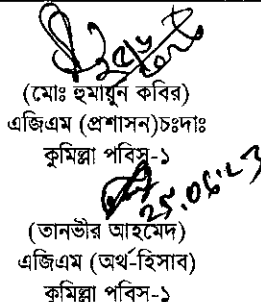 (মোঃ হুমায়ুন কবির)
এজিএম (প্রশাসন)চঃদাঃ
কুমিল্লা পবিস-১
25.06.23
(তানভীর আহমেদ)
এজিএম (অর্থ-হিসাব)
কুমিল্লা পবিস-১